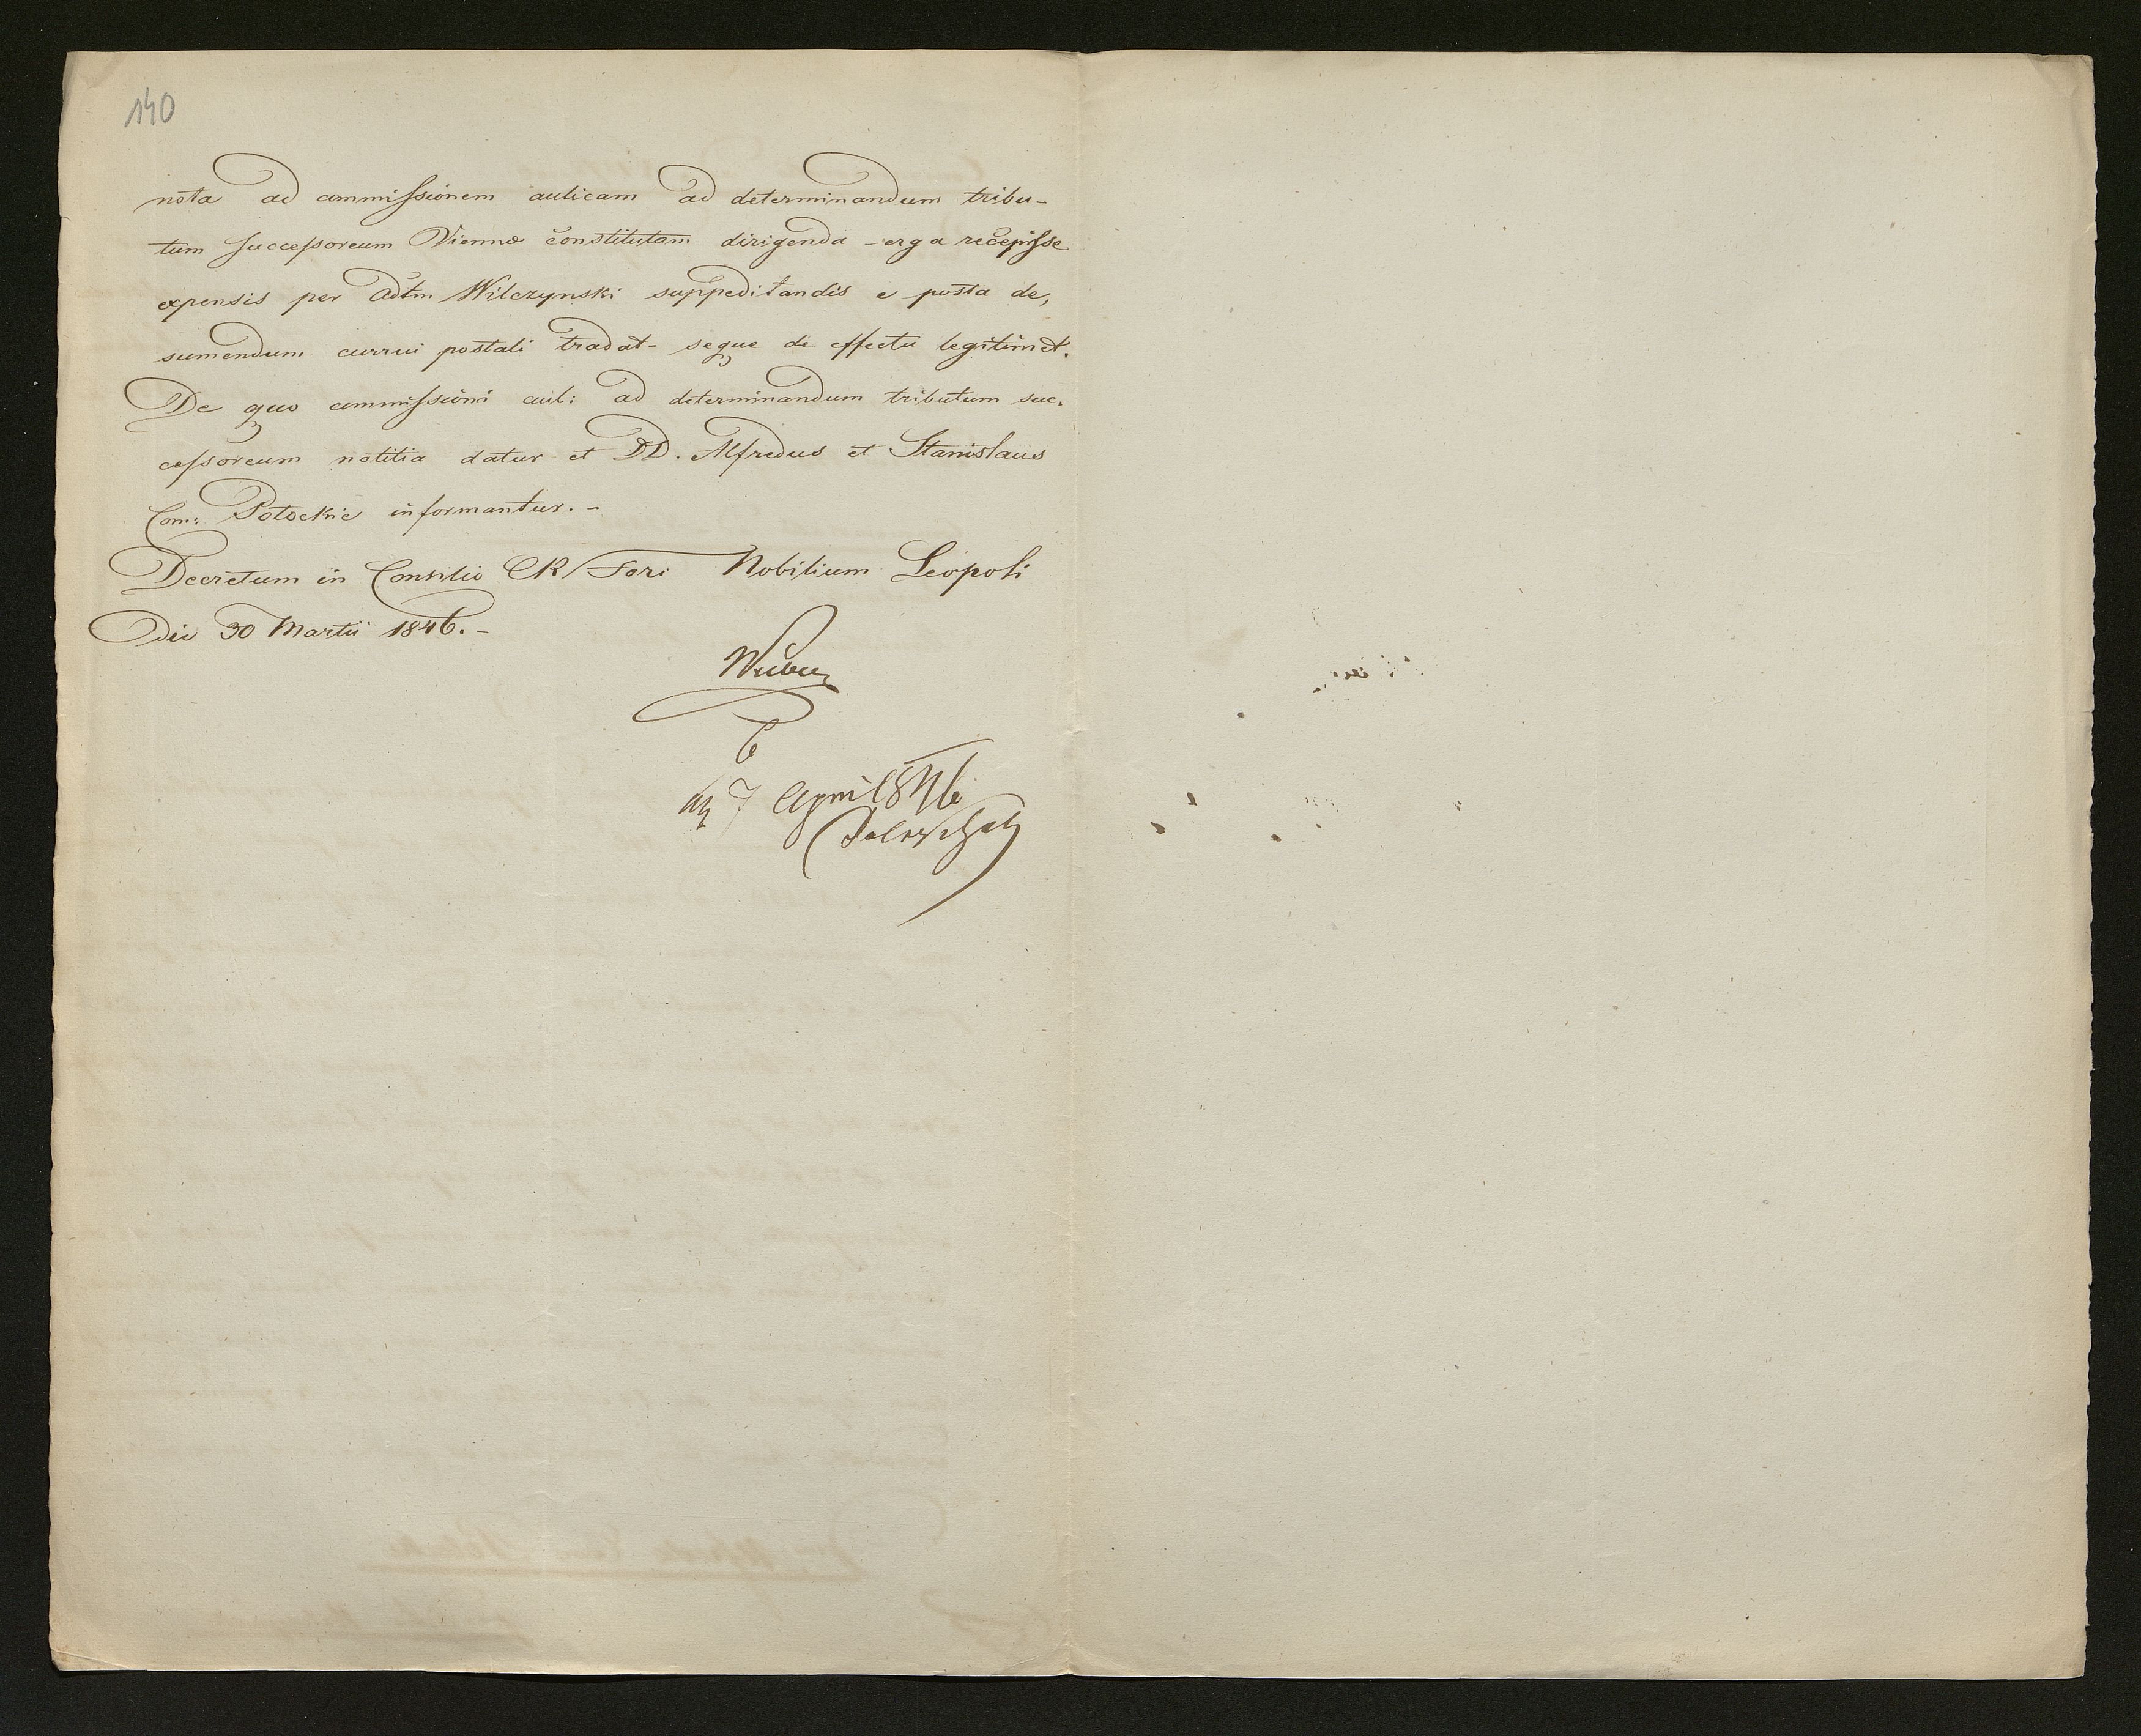 140
nota ad commissionem aulicam ad determinandum tribu-
tum successoreum Viennæ constitutam dirigenda - erga recepisse
expensis per Adtm Wilczynski suppeditandis e posta de,
sumendum currui postali tradat - seque de effectu legitimet.
De quo commissioni aul: ad determinandum tributum suc,
cessoreum notitia datur et DD. Alfredus et Stanislaus
Com: Potockie informantur. -
Decretum in Consilio CR Fori Nobilium Leopoli
Die 30 Martii 1846. -
7 April 846